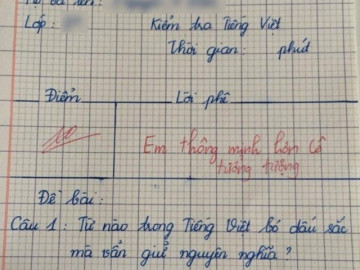 Lớp:
Kiểm tra Tiếng Việt
Thời gian: phút
Điểm
Lời phê
10
Em thông minh hơn cô
tưởng tượng
Đề bài:
Câu 1: Từ nào trong Tiếng Việt bỏ dấu sắc
mà vẫn giữ nguyên nghĩa?